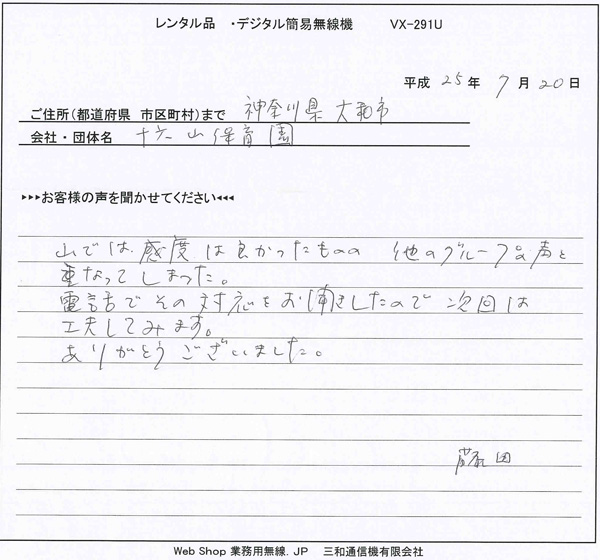 レンタル品 ・デジタル簡易無線機 VX-291U
平成 25年 7月20日
ご住所(都道府県 市区町村)まで 神奈川県大和市
会社・団体名 山保育園
▸▸▸お客様の声を聞かせてください◂◂◂
山では、感度は良かったものの 他のグループの声と
重なってしまった。
電話でその対応をお聞きしたので次回は
工夫してみます。
ありがとうございました。
藤田
Web Shop 業務用無線.JP 三和通信機有限会社